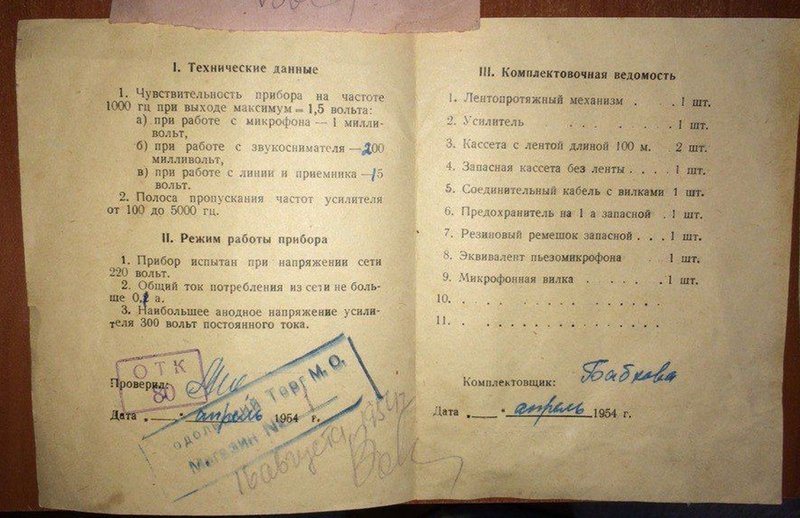 I. Технические данные
1. Чувствительность прибора на частоте
1000 гц при выходе максимум = 1,5 вольта:
а) при работе с микрофона — 1 милли-
вольт,
б) при работе с звукоснимателя — 200
милливольт,
в) при работе с линии и приемника — 15
вольт.
2. Полоса пропускания частот усилителя
от 100 до 5000 гц.
II. Режим работы прибора
1. Прибор испытан при напряжении сети
220 вольт.
2. Общий ток потребления из сети не боль-
ше 0, а.
3. Наибольшее анодное напряжение усили-
теля 300 вольт постоянного тока.
ОТК
80
Проверил:
Дата . " апрель 1954 г.
одольский Торг М. О.
Магазин №
16 августа 1954 г
III. Комплектовочная ведомость
1. Лентопротяжный механизм . . 1 шт.
2. Усилитель . . . . . . . . 1 шт.
3. Кассета с лентой длиной 100 м. 2 шт.
4. Запасная кассета без ленты . . . . 1 шт.
5. Соединительный кабель с вилками 1 шт.
6. Предохранитель на 1 а запасной . 1 шт.
7. Резиновый ремешок запасной . . . 1 шт.
8. Эквивалент пьезомикрофона 1 шт.
9. Микрофонная вилка . . . . . 1 шт.
10. . . . . . . . . . . . . . . .
11. . . . . . . . . . . . . . . .
Комплектовщик: Бабкова
Дата . " апрель 1954 г.